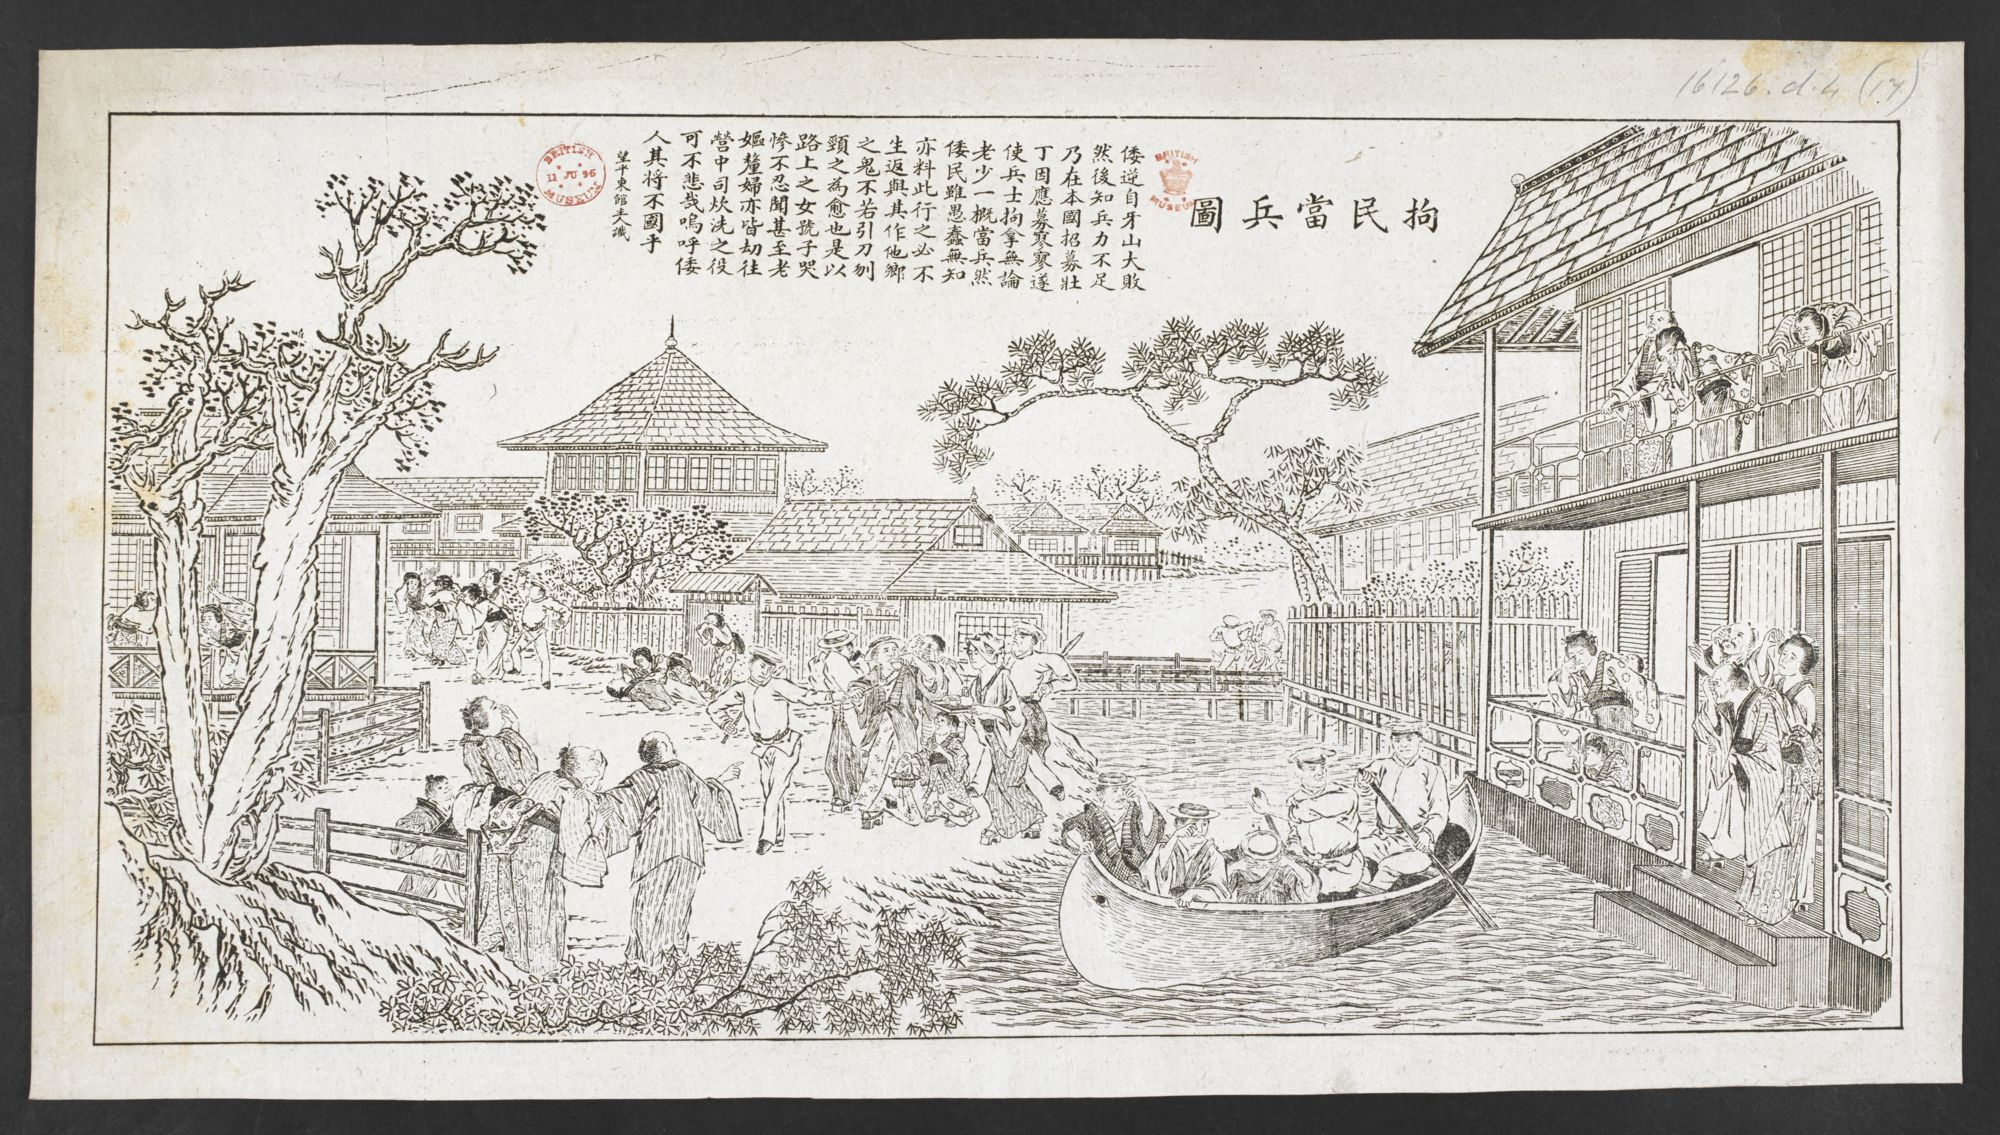 16126.d.4 (17)
拘民當兵圖
倭逆自牙山大敗
然後知兵力不足
乃在本國招募壯
丁因應募寥寥遂
使兵士拘拿無論
老少一概當兵然
倭民雖愚蠢無知
亦料此行之必不
生返與其作他鄉
之鬼不若引刀刎
頸之為愈也是以
路上之女號子哭
慘不忍聞甚至老
嫗釐婦亦皆劫往
營中司炊洗之役
可不悲哉嗚呼倭
人其將不國乎
望平東館主人識
BRITISH
MUSEUM
BRITISH
11 JU 96
MUSEUM